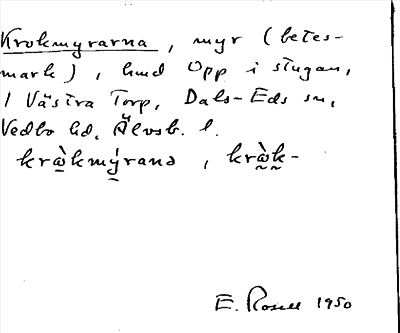 Krokmyrarna, myr (betes-
mark), hmd Opp i stugan,
1 Västra Torp, Dals-Eds sn,
Vedbo hd, Älvsb. l.
kràkmýrana, kràk-
E. Rosell 1950